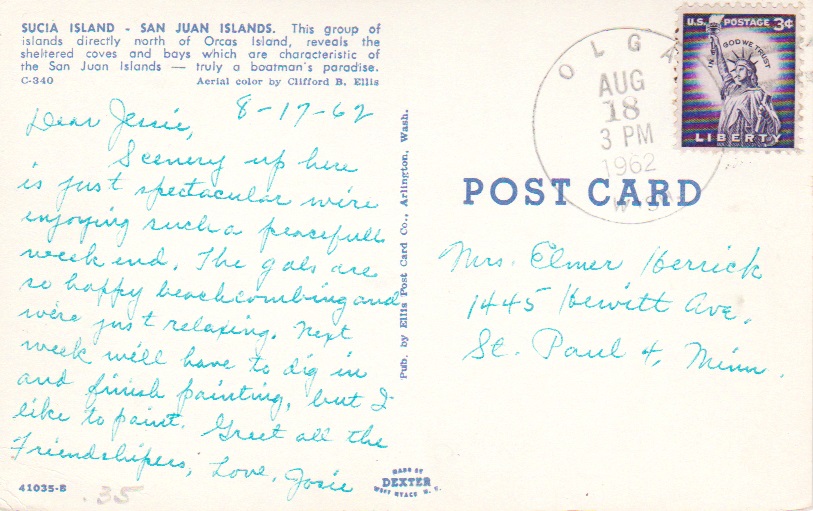 SUCIA ISLAND - SAN JUAN ISLANDS. This group of
islands directly north of Orcas Island, reveals the
sheltered coves and bays which are characteristic of
the San Juan Islands — truly a boatman's paradise.
C-340 Aerial color by Clifford B. Ellis
8-17-62
Dear Jessie,
Scenery up here
is just spectacular we're
enjoying such a peacefull
week end. The gals are
so happy beachcombing and
we're just relaxing. Next
week we'll have to dig in
and finish painting, but I
like to paint. Greet all the
Friendshipers, Love, Josie
41035-B
.35
Pub. by Ellis Post Card Co., Arlington, Wash.
MADE BY
DEXTER
WEST NYACK N. Y.
OLGA
AUG
18
3 PM
1962
U.S. POSTAGE 3¢
IN GOD WE TRUST
LIBERTY
POST CARD
Mrs. Elmer Herrick
1445 Hewitt Ave.
St. Paul 4, Minn.